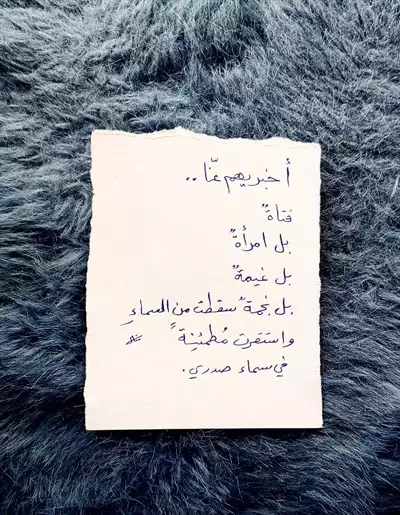 أخبريهم عنّا..
فتاةٌ
بل امرأةٌ
بل غيمةٌ
بل نجمةٌ سقطت من السماءِ
واستقرت مُطمئِنةً
في سماء صدري.